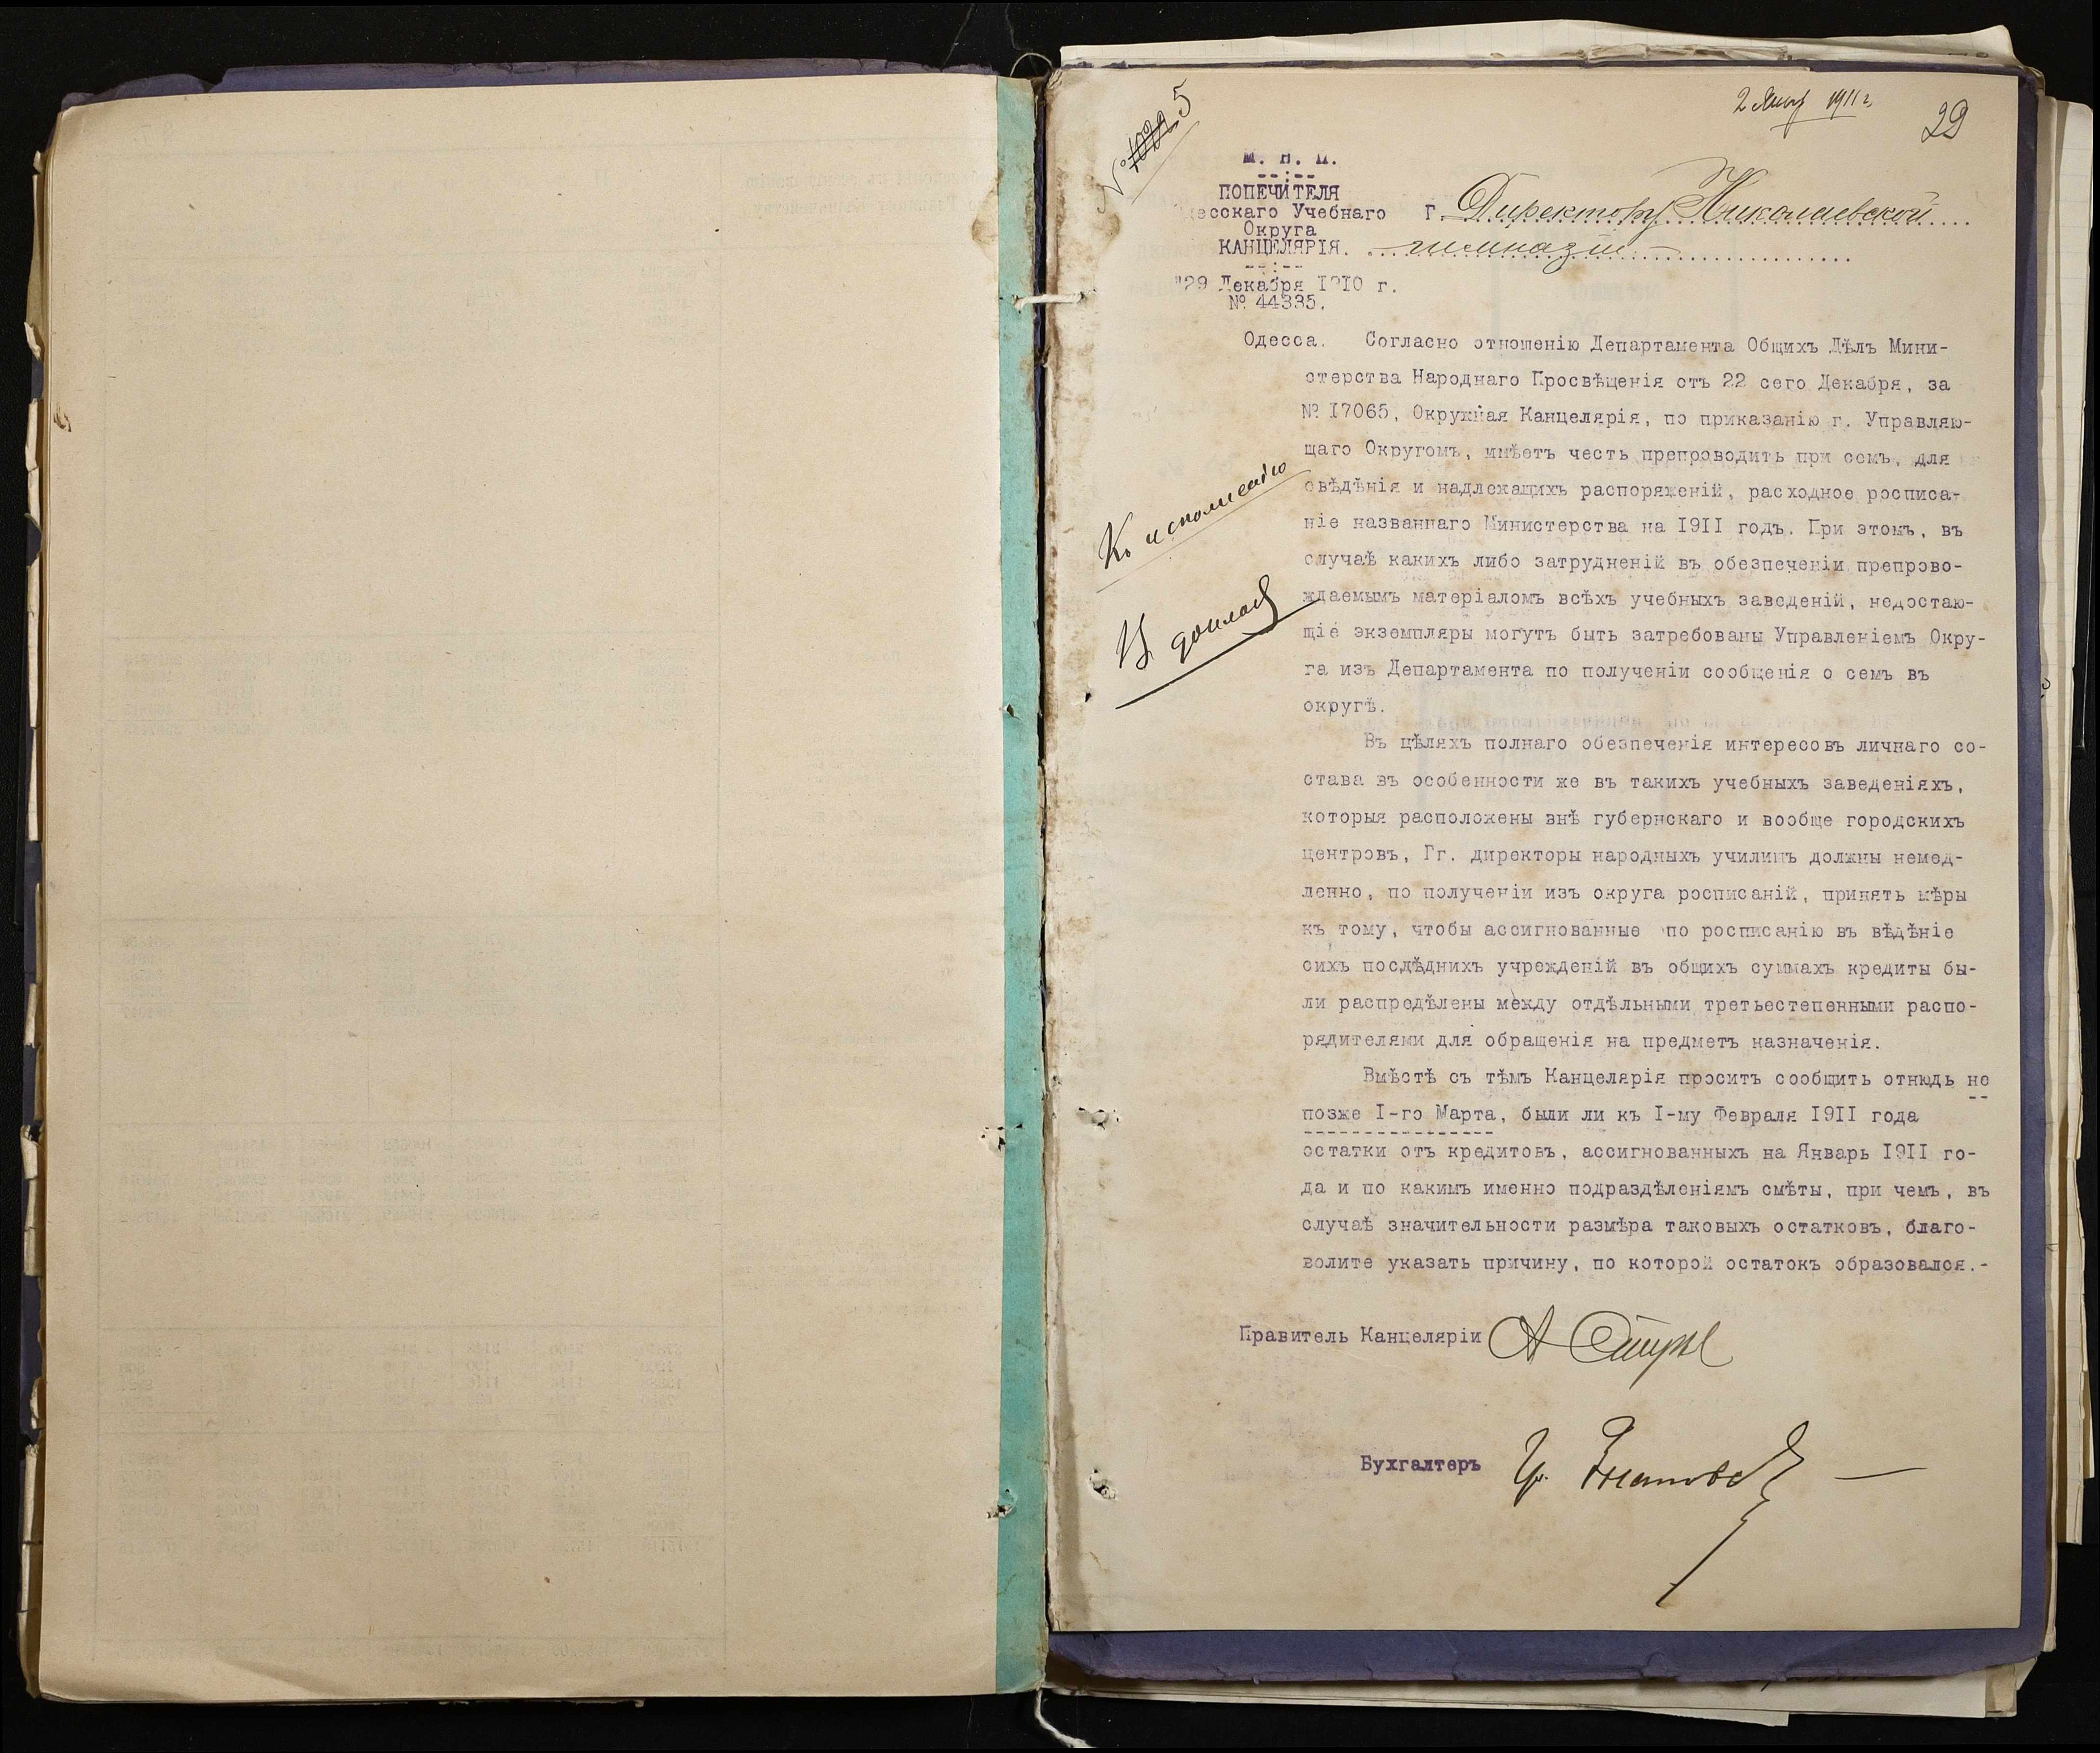 2 Янв 1911 г.
29
№ 1029 5
М. Н. П.
ПОПЕЧИТЕЛЯ
десскаго Учебнаго
Округа
КАНЦЕЛЯРІЯ.
"29 Декабря 1910 г.
№ 44335.
Одесса.
Г. Директору Николаевской
гимназіи
Согласно отношенію Департамента Общихъ Дѣлъ Мини-
стерства Народнаго Просвѣщенія отъ 22 сего Декабря, за
№ 17065, Окружная Канцелярія, по приказанію г. Управляю-
щаго Округомъ, имѣетъ честь препроводить при семъ, для
свѣдѣнія и надлежащихъ распоряженій, расходное росписа-
ніе названнаго Министерства на 1911 годъ. При этомъ, въ
случаѣ какихъ либо затрудненій въ обезпеченіи препрово-
ждаемымъ матеріаломъ всѣхъ учебныхъ заведеній, недостаю-
щіе экземпляры могутъ быть затребованы Управленіемъ Окру-
га изъ Департамента по полученіи сообщенія о семъ въ
округѣ.
Къ исполненію
Къ докладу
Въ цѣляхъ полнаго обезпеченія интересовъ личнаго со-
става въ особенности же въ такихъ учебныхъ заведеніяхъ,
которыя расположены внѣ губернскаго и вообще городскихъ
центровъ, Гг. директоры народныхъ училищъ должны немед-
ленно, по полученіи изъ округа росписаній, принять мѣры
къ тому, чтобы ассигнованные по росписанію въ вѣдѣніе
сихъ послѣднихъ учрежденій въ общихъ суммахъ кредиты бы-
ли распредѣлены между отдѣльными третьестепенными распо-
рядителями для обращенія на предметъ назначенія.
Вмѣстѣ съ тѣмъ Канцелярія проситъ сообщить отнюдь не
позже I-го Марта, были ли къ I-му Февраля 1911 года
остатки отъ кредитовъ, ассигнованныхъ на Январь 1911 го-
да и по какимъ именно подраздѣленіямъ смѣты, при чемъ, въ
случаѣ значительности размѣра таковыхъ остатковъ, благо-
волите указать причину, по которой остатокъ образовался.-
Правитель Канцеляріи А
Бухгалтеръ